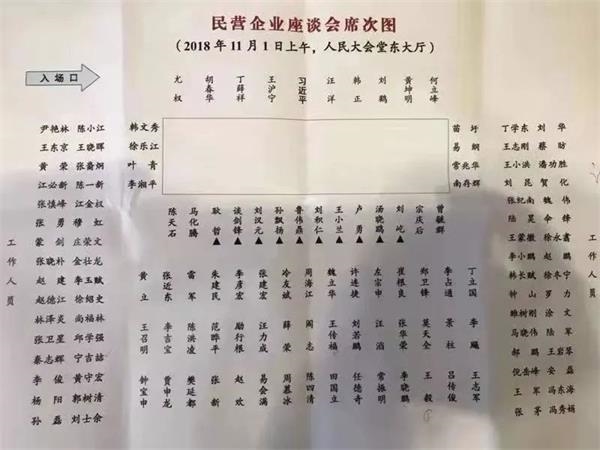 民营企业座谈会席次图
（2018年11月1日上午，人民大会堂东大厅）
入场口
尤权 胡春华 丁薛祥 王沪宁 习近平 汪洋 韩正 刘鹤 黄坤明 何立峰
尹艳林 陈小江 韩文秀 苗圩 丁学东 刘华
王东京 王晓晖 徐乐江 易纲 王志刚 蔡昉
黄荣 张裔炯 叶青 常兆华 王小洪 潘功胜
江必新 陈一新 李湘平 南存辉 刘昆 贺化
张慎峰 江金权 张纪南 魏伟
张勇 穆虹 陆昊 伞锋
工作人员
工作人员
陈天石 马化腾 耿哲▲ 谈剑锋▲ 刘汉元▲ 孙飘扬▲ 鲁伟鼎▲ 刘积仁▲ 王小兰▲ 卢勇▲ 汤晓鸥▲ 刘屹▲ 宗庆后 曾毓群
蒙剑 庄荣文 王蒙徽 徐永鑫
张晓朴 金壮龙 李小鹏 赵鹏
赵建 李玉赋 韩长赋 徐冬宁
赵德江 徐绍史 钟山 罗力
林泽炎 尚福林 雒树刚 涂文
张卫星 邱学强 马晓伟 陆军
秦志辉 宁吉喆 郝鹏 王岩琴
李俊 黄守宏 倪岳峰 安磊
杨阳 郭树清 王军 冯东海
孙磊 刘士余 张茅 冯秀娟
黄立 张近东 雷军 朱建民 李彦宏 张建宏 冷友斌 周海江 魏立华 许连捷 左宗申 崔根良 郑卫锋 李占通 丁立国
王召明 李吉宝 陈洪凌 范晔平 励行根 汪力成 薛荣 阎志 王传福 刘若鹏 汪滔 张华荣 莫天全 景柱 李飚
钟宝申 贾申龙 樊延都 张新 赵欢 易会满 周慕冰 陈四清 田国立 任德奇 常振明 李晓鹏 王毅 吕传俊 王志军